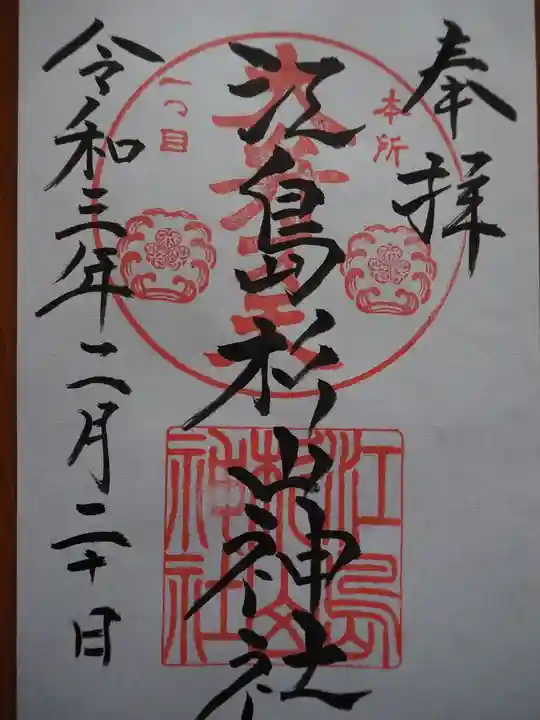 奉拝
本所
一つ目
江島杉山神社
江島
杉山
神社
令和三年二月二十日